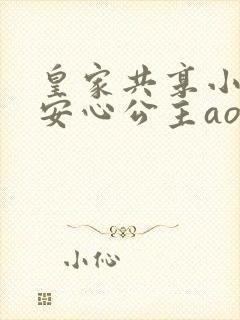 皇家共享小
安心公主ao
小伈